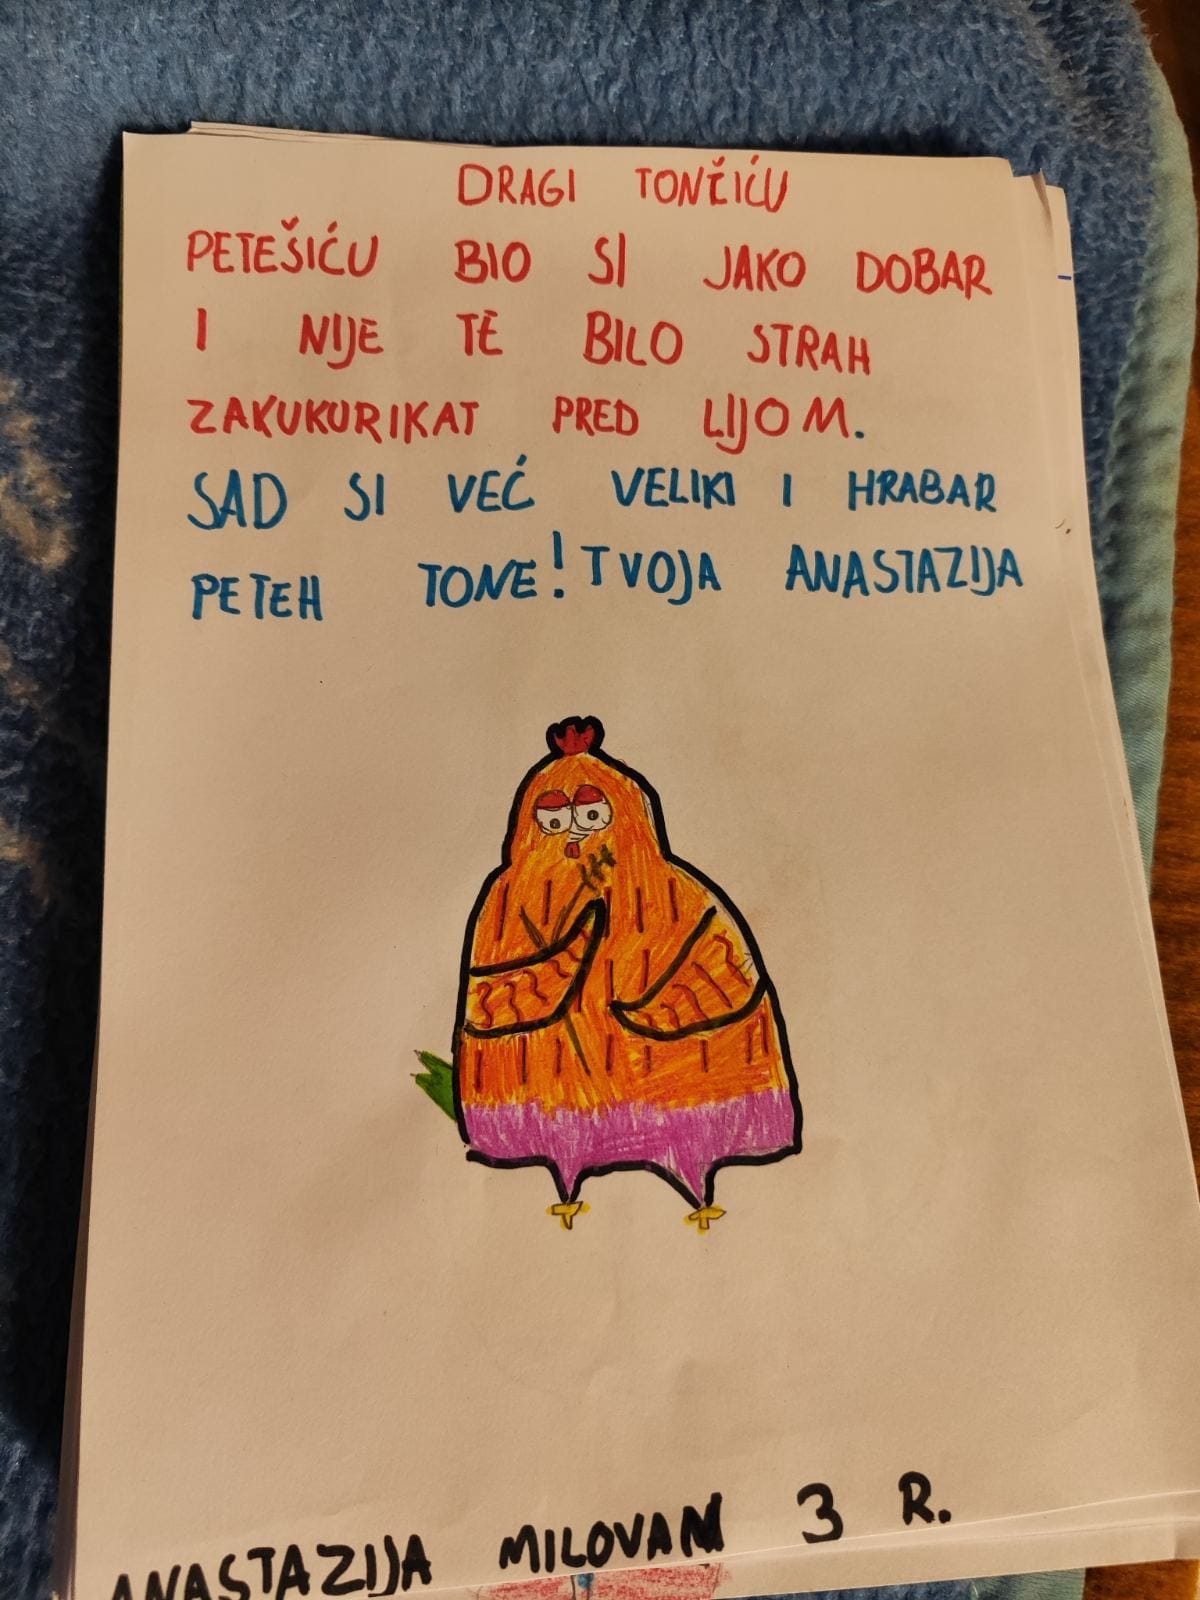 DRAGI TONČIĆU
PETEŠIĆU BIO SI JAKO DOBAR
I NIJE TE BILO STRAH
ZAKUKURIKAT PRED LIJOM.
SAD SI VEĆ VELIKI I HRABAR
PETEH TONE! TVOJA ANASTAZIJA
ANASTAZIJA MILOVAN 3 R.